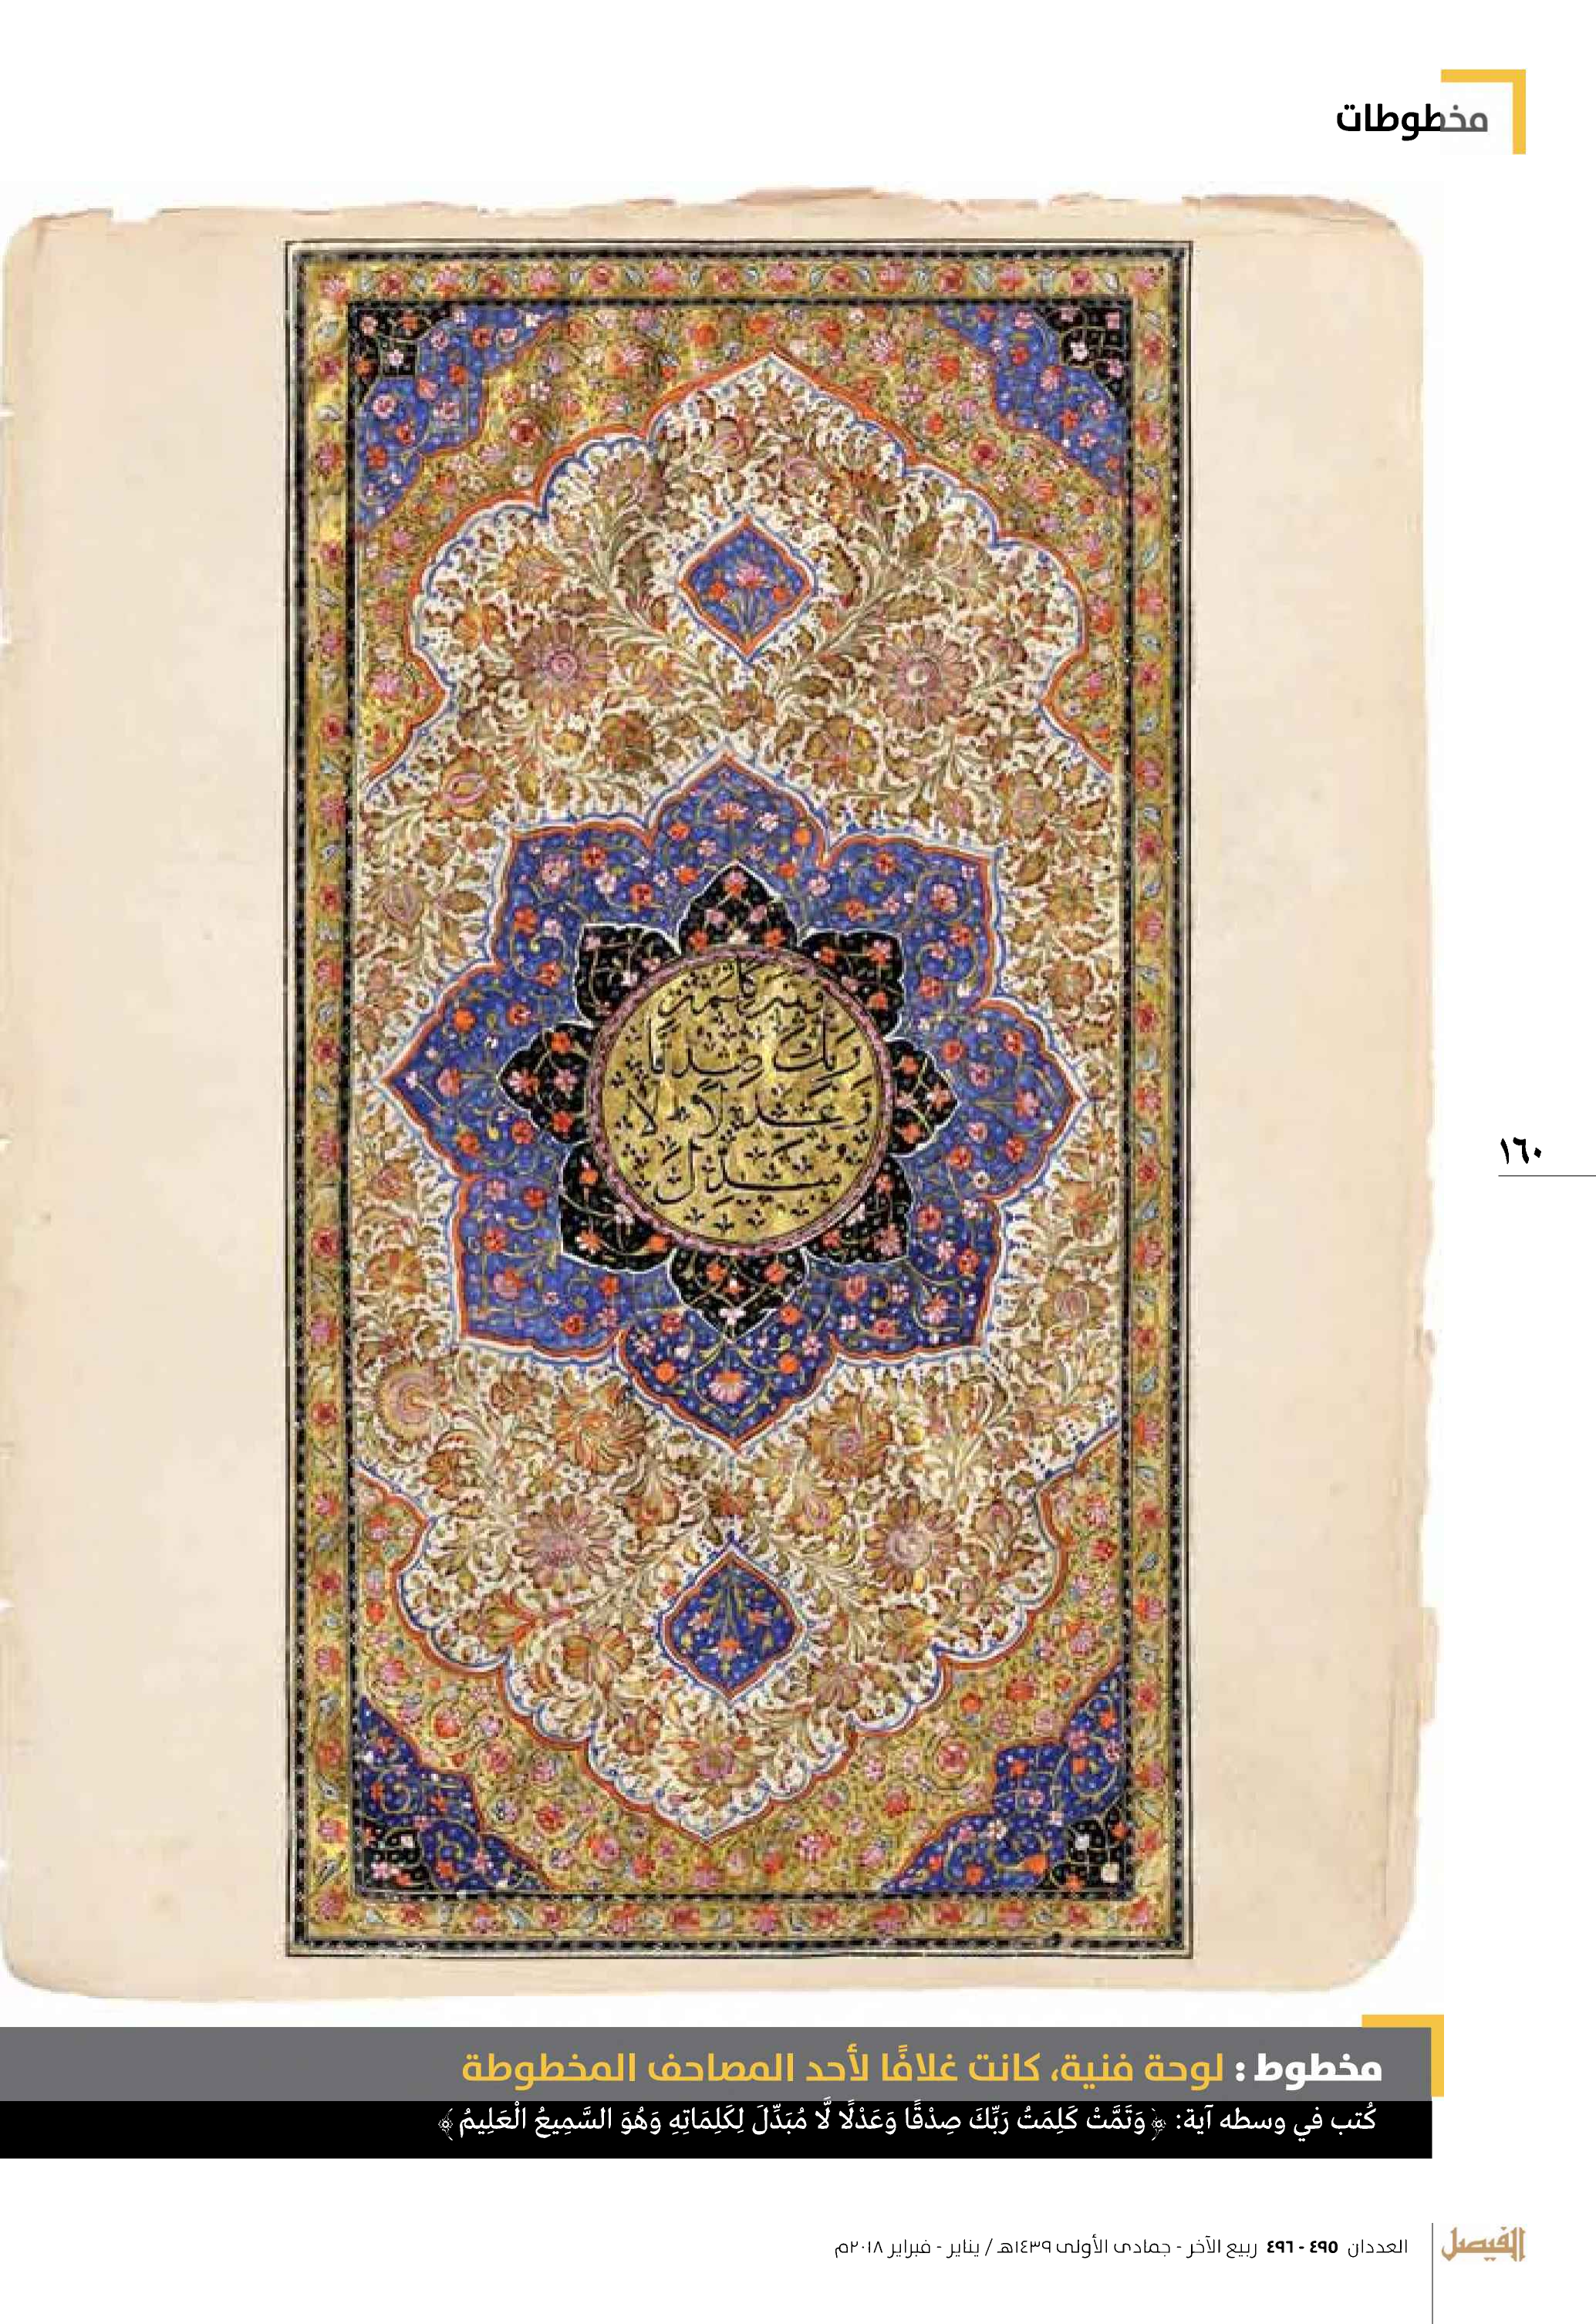 مخطوطات
ربك صدقا
وعدلا لا
مبدل
١٦٠
مخطوط : لوحة فنية، كانت غلافًا لأحد المصاحف المخطوطة
كُتب في وسطه آية: ﴿وَتَمَّتْ كَلِمَتُ رَبِّكَ صِدْقًا وَعَدْلًا لَّا مُبَدِّلَ لِكَلِمَاتِهِ وَهُوَ السَّمِيعُ الْعَلِيمُ﴾
الفيصل
العددان ٤٩٥ - ٤٩٦ ربيع الآخر - جمادى الأولى ١٤٣٩هـ / يناير - فبراير ٢٠١٨م